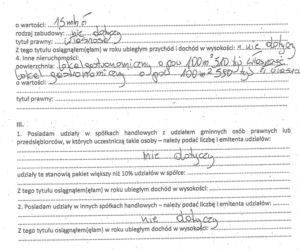 o wartości: 15 mln zł
rodzaj zabudowy: nie dotyczy
tytuł prawny: własność
Z tego tytułu osiągnąłem(ęłam) w roku ubiegłym przychód i dochód w wysokości: nie dotyczy
4. Inne nieruchomości:
powierzchnia: lokal gastronomiczny o pow 100m² 510 tyś własność
lokal gastronomiczny o pow 100m² 550 tyś zł
o wartości:
tytuł prawny:
III.
1. Posiadam udziały w spółkach handlowych z udziałem gminnych osób prawnych lub
przedsiębiorców, w których uczestniczą takie osoby – należy podać liczbę i emitenta udziałów:
nie dotyczy
udziały te stanowią pakiet większy niż 10% udziałów w spółce:
Z tego tytułu osiągnąłem(ęłam) w roku ubiegłym dochód w wysokości:
2. Posiadam udziały w innych spółkach handlowych – należy podać liczbę i emitenta udziałów:
nie dotyczy
Z tego tytułu osiągnąłem(ęłam) w roku ubiegłym dochód w wysokości: